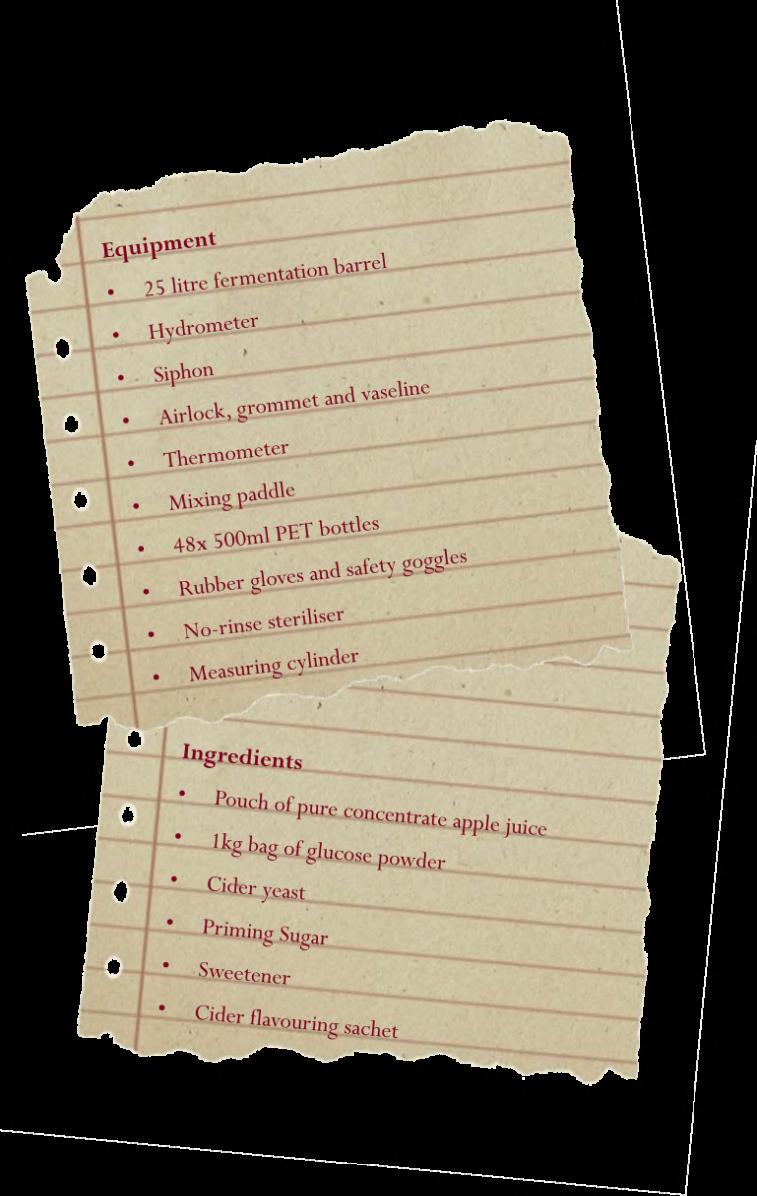 Equipment
• 25 litre fermentation barrel
• Hydrometer
• Siphon
• Airlock, grommet and vaseline
• Thermometer
• Mixing paddle
• 48x 500ml PET bottles
• Rubber gloves and safety goggles
• No-rinse steriliser
• Measuring cylinder
Ingredients
• Pouch of pure concentrate apple juice
• 1kg bag of glucose powder
• Cider yeast
• Priming Sugar
• Sweetener
• Cider flavouring sachet